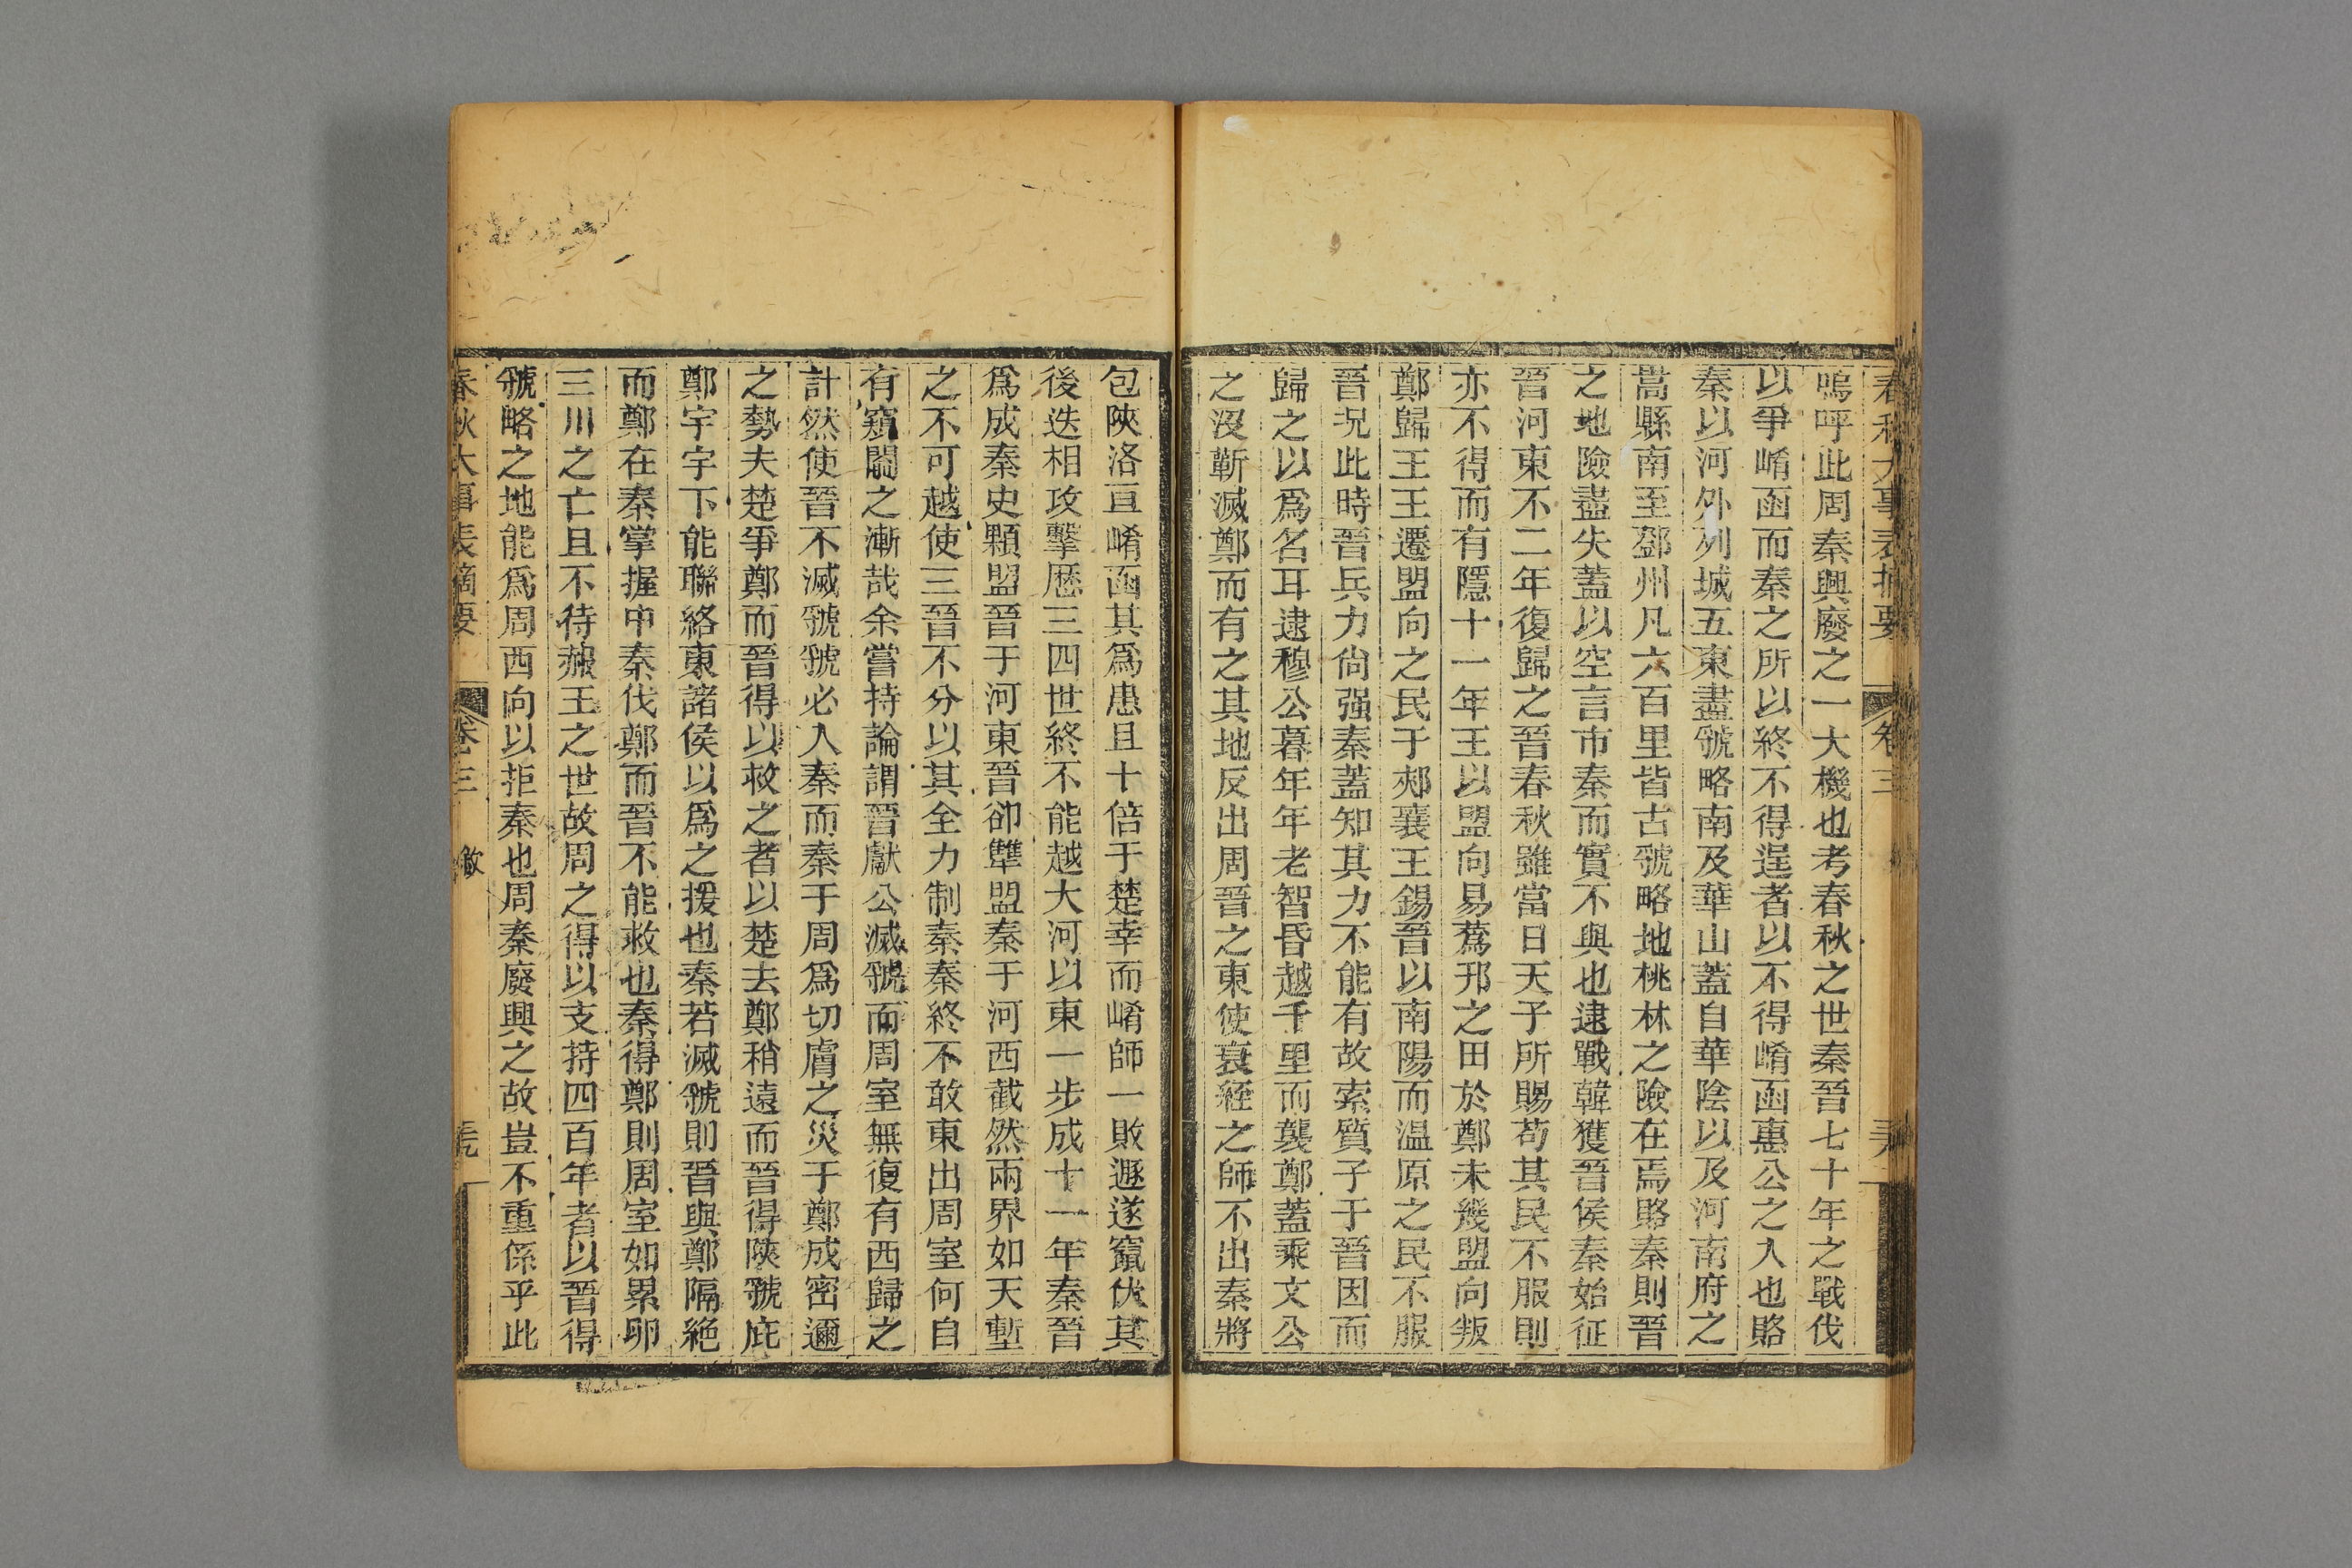 春秋大事表摘要 卷三
嗚呼此周秦興廢之一大機也考春秋之世秦晉七十年之戰伐
以爭崤函而秦之所以終不得逞者以不得崤函惠公之入也賂
秦以河外列城五東盡虢略南及華山蓋自華陰以及河南府之
嵩縣南至鄧州凡六百里皆古虢略地桃林之險在焉賂秦則晉
之地險盡失蓋以空言市秦而實不與也逮戰韓獲晉侯秦始征
晉河東不二年復歸之晉春秋雖當日天子所賜苟其民不服則
亦不得而有隱十一年王以盟向易蔿邘之田於鄭未幾盟向叛
鄭歸王王遷盟向之民于郟襄王錫晉以南陽而溫原之民不服
晉況此時晉兵力尙强秦蓋知其力不能有故索質子于晉因而
歸之以爲名耳逮穆公暮年年老智昏越千里而襲鄭蓋乘文公
之沒蘄滅鄭而有之其地反出周晉之東使衰絰之師不出秦將
包陝洛亘崤函其爲患且十倍于楚幸而崤師一敗遯遂竄伏其
後迭相攻擊歷三四世終不能越大河以東一步成十一年秦晉
爲成秦史顆盟晉于河東晉卻犨盟秦于河西截然兩界如天塹
之不可越使三晉不分以其全力制秦秦終不敢東出周室何自
有窺闚之漸哉余嘗持論謂晉獻公滅虢而周室無復有西歸之
計然使晉不滅虢虢必入秦而秦于周爲切膚之災于鄭成密邇
之勢夫楚爭鄭而晉得以救之者以楚去鄭稍遠而晉得陝虢庇
鄭宇宇下能聯絡東諸侯以爲之援也秦若滅虢則晉與鄭隔絕
而鄭在秦掌握中秦伐鄭而晉不能救也秦得鄭則周室如累卵
三川之亡且不待赧王之世故周之得以支持四百年者以晉得
虢略之地能爲周西向以拒秦也周秦廢興之故豈不重係乎此
春秋大事表摘要 卷三